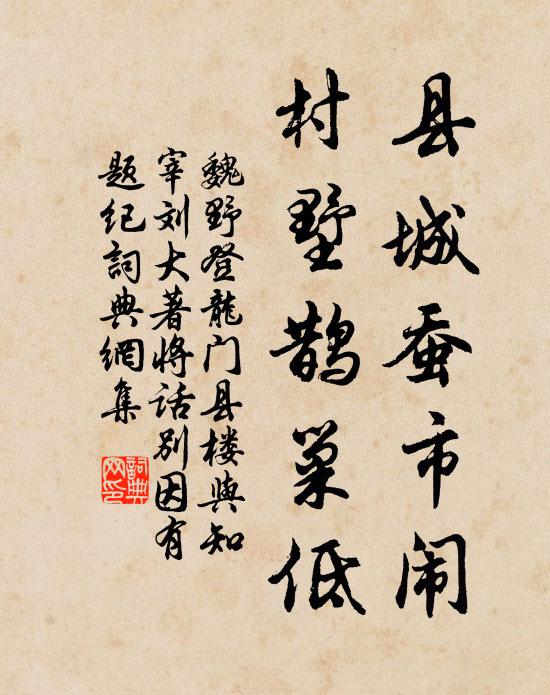 县城蚕市闹
村墅鹊巢低
魏野登龍门县楼與知
宰刘大著将话别因有
题纪詞典網集
詞典
网印